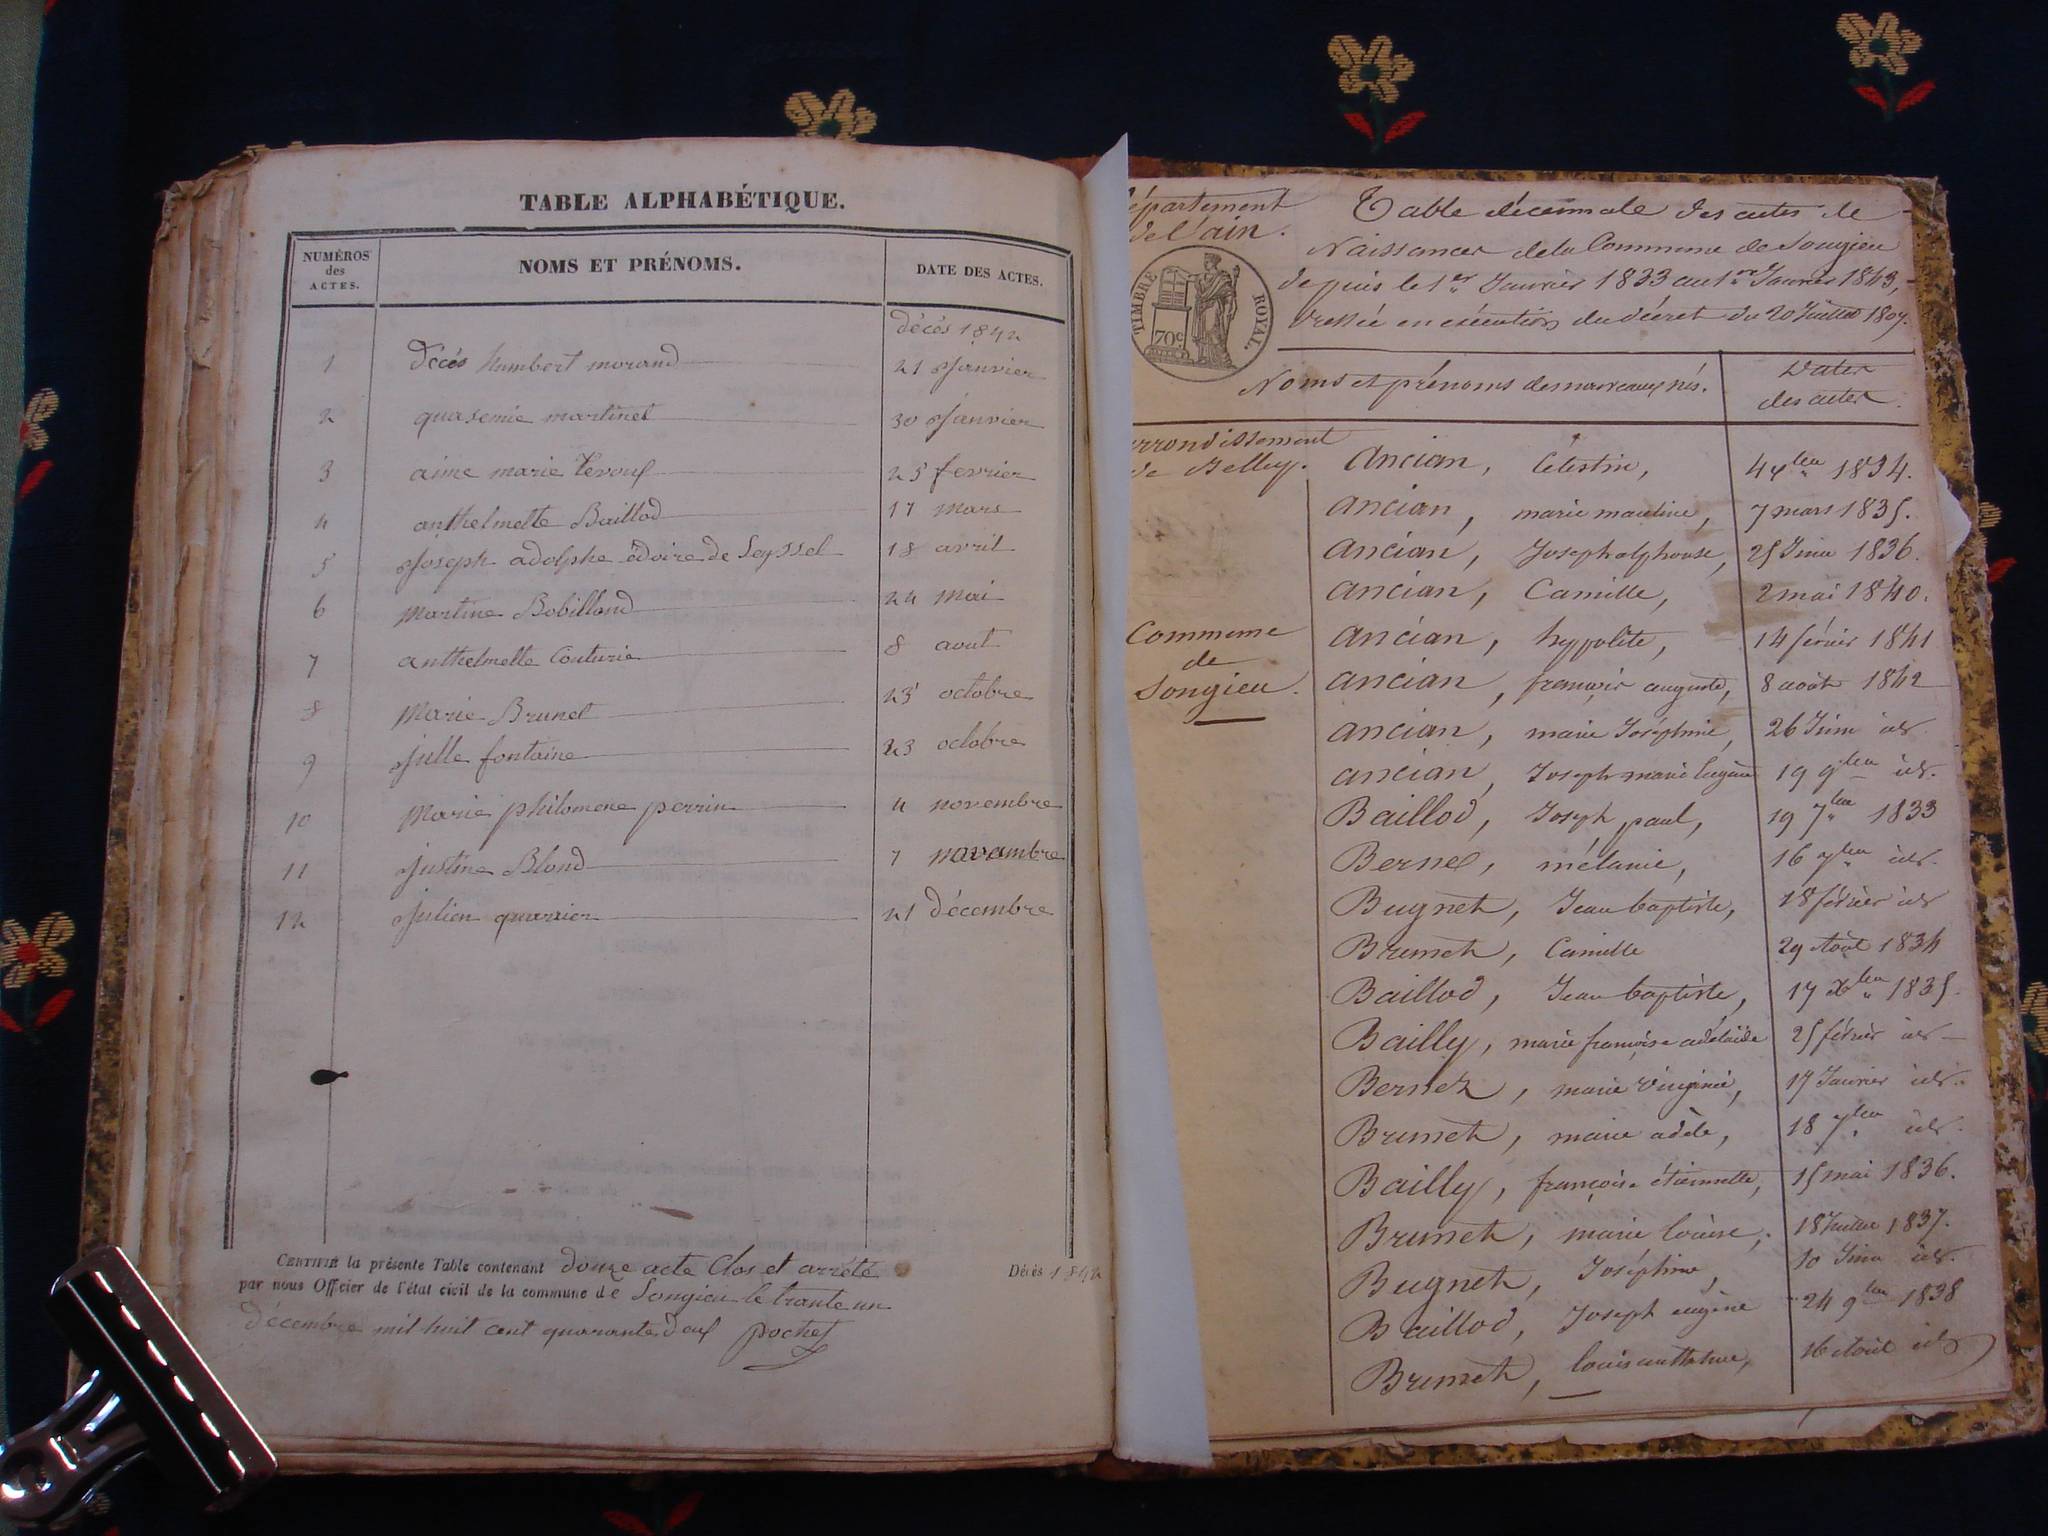 TABLE ALPHABÉTIQUE.
NUMÉROS des ACTES. NOMS ET PRÉNOMS. DATE DES ACTES.
décès 1842
1 Décés humbert morand 21 Janvier
2 quasemie martinet 30 Janvier
3 aime marie 25 fevrier
4 anthelmette Baillod 17 mars
5 Joseph adolphe édoire de Seyssel 18 avril
6 Martine Bobillond 24 Mai
7 anthelmette Couturie 8 aout
8 Marie Brunet 23 octobre
9 Julle fontaine 23 octobre
10 Marie philomene perrin 4 novembre
11 Justine Blond 7 novambre
12 Julien quarrier 21 décembre
CERTIFIÉ la présente Table contenant douze acte Clos et arrété
par nous Officier de l'état civil de la commune de Songieu le trante un
décembre mil huit cent quarante deuf pochet
Décès 1842
épartement
de l'ain.
TIMBRE ROYAL.
70c
Table décennale des actes de
Naissances de la Commune de Songieu
depuis le 1er Janvier 1833 au 1er Janvier 1843,
dressée en exécution du décret du 20 Juillet 1807.
Noms et prénoms des nouveaux nés. Dates des actes.
rrondissement
de Belley.
Commune
de
Songieu.
ancian, Célestin, 4 1834.
ancian, marie 7 mars 1835.
ancian, Joseph alphonse, 25 Juin 1836.
ancian, Camille, 2 mai 1840.
ancian, hyppolite, 14 février 1841
ancian, françois auguste, 8 août 1842
ancian, marie Joséphine, 26 Juin id.
ancian, Joseph marie Eugène 19 9bre id.
Baillod, Joseph paul, 19 7bre 1833
Bernet, mélanie, 16 7bre id.
Bugnet, Jean baptiste, 18 février id
Brunet, Camille 29 Août 1834
Baillod, Jean baptiste, 17 Xbre 1835.
Bailly, marie françoise adélaïde 25 février id
Bernet, marie virginie, 17 Janvier id.
Brunet, marie adèle, 18 7bre id.
Bailly, françoise étiennette, 15 mai 1836.
Brunet, marie louise, 18 Juillet 1837.
Bugnet, Joséphine, 10 Juin id.
Baillod, Joseph eugène 24 9bre 1838
Brunet, louis 16 Août id